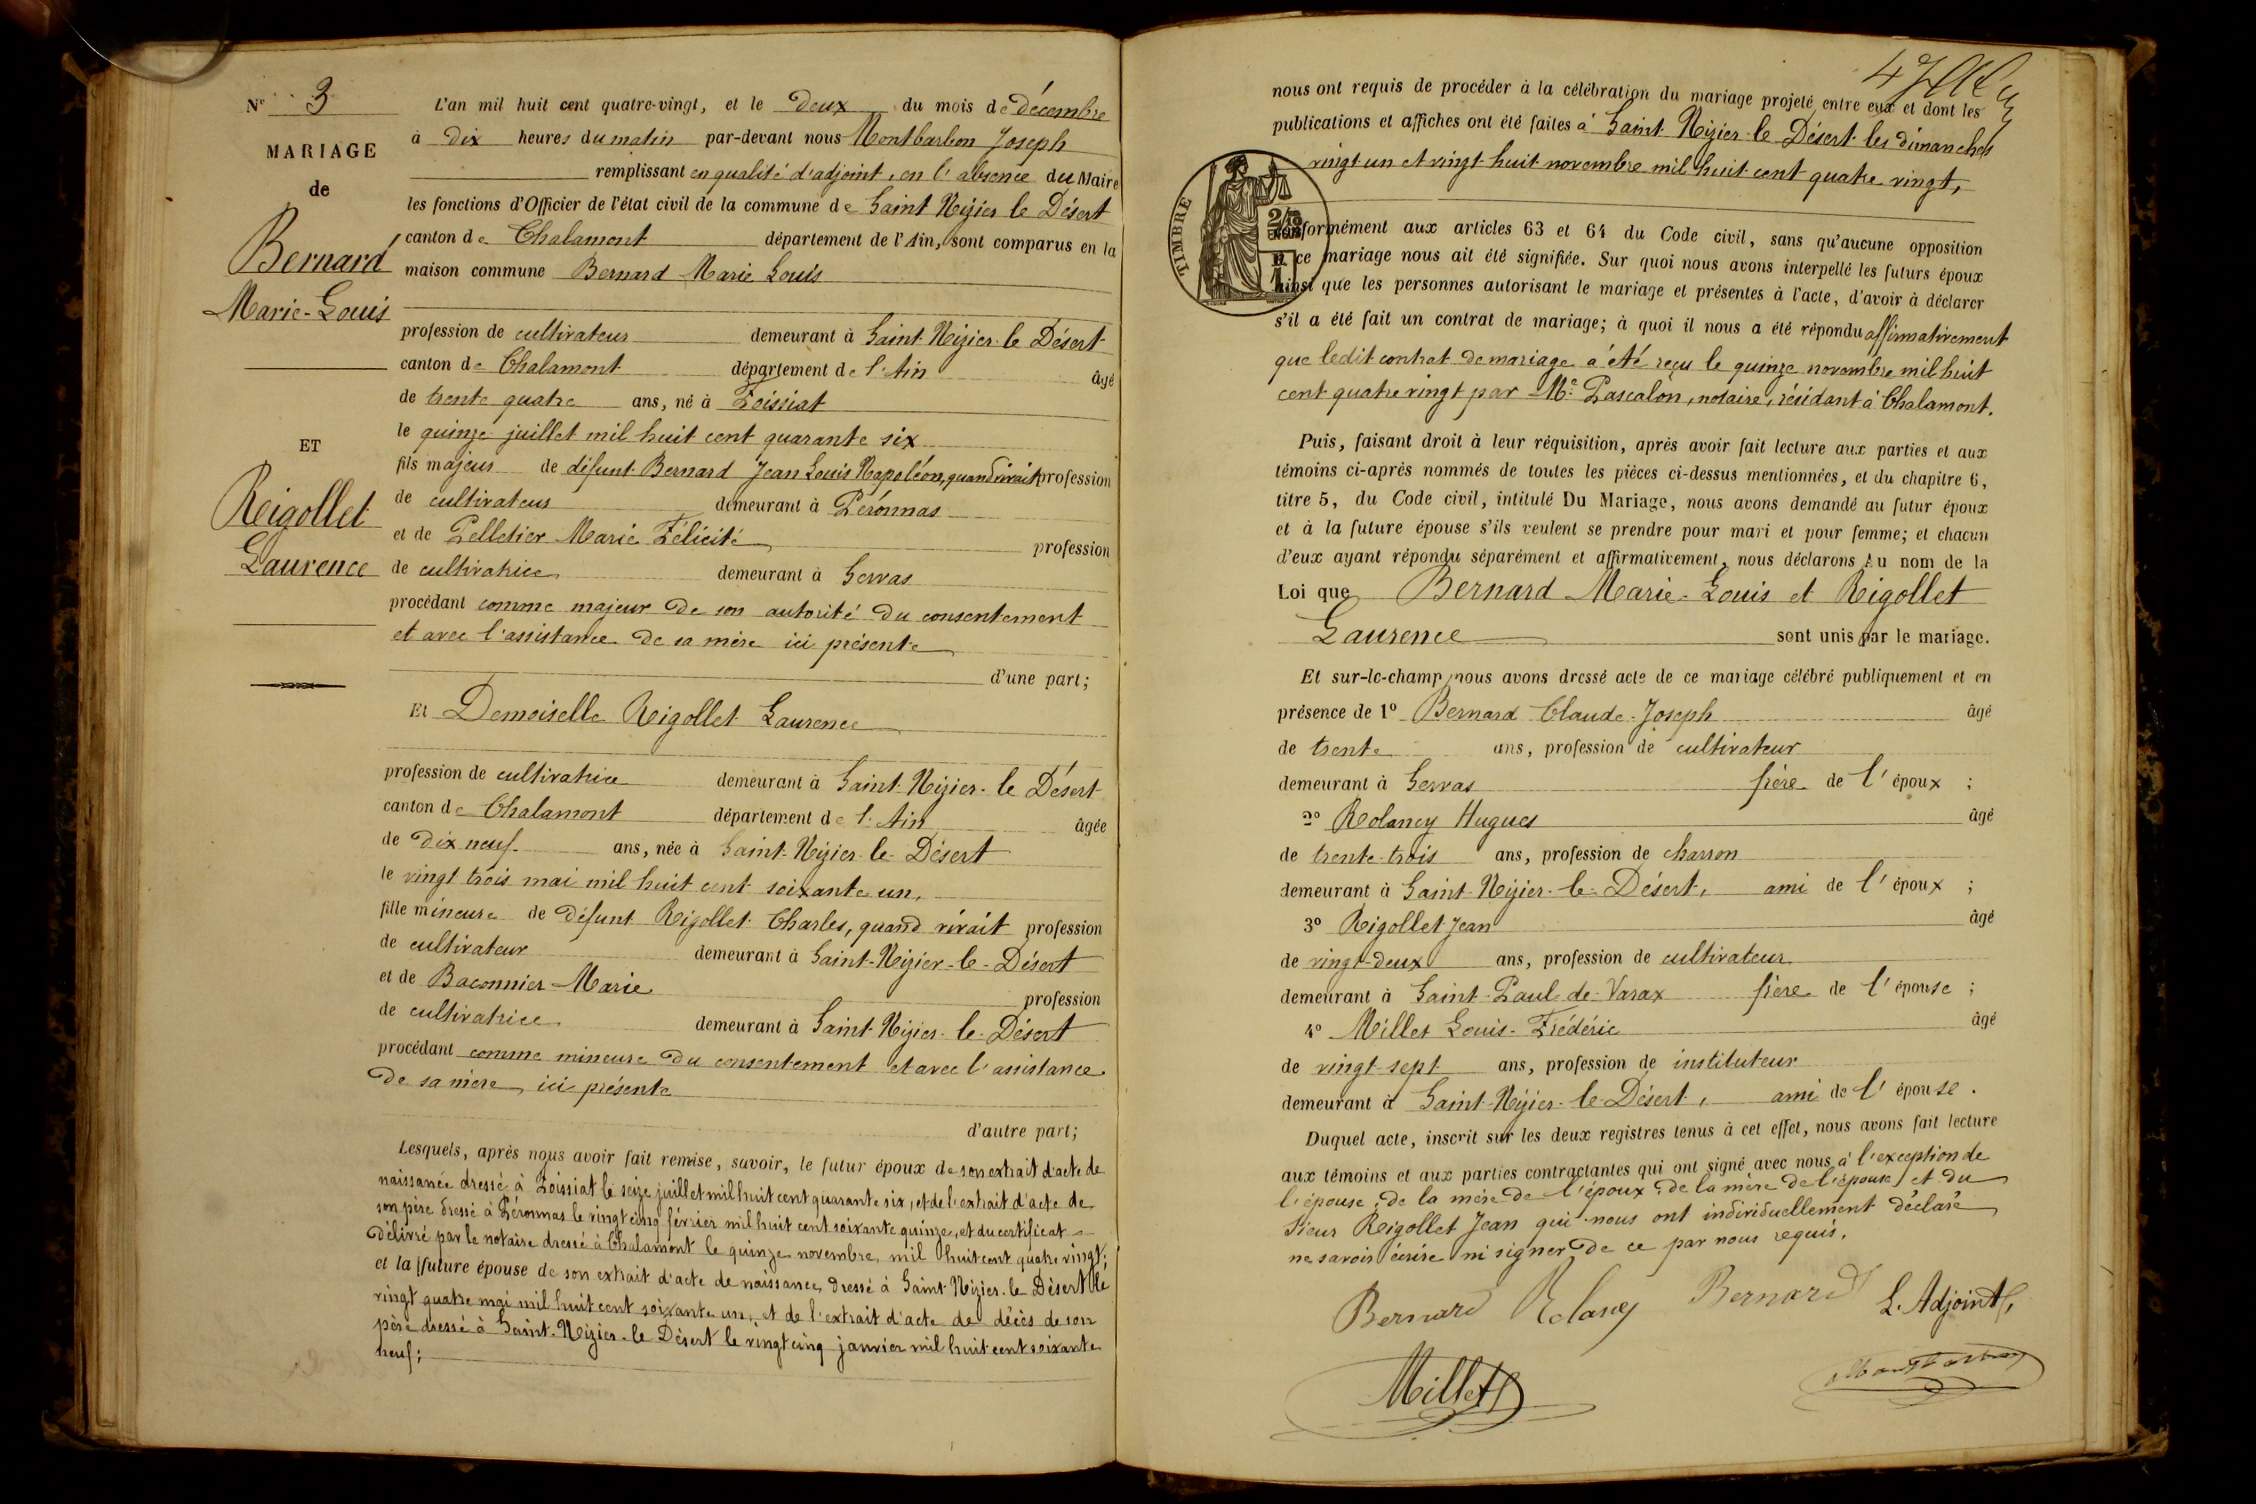 N° 3
MARIAGE
de
Bernard
Marie-Louis
ET
Rigollet
Laurence
L'an mil huit cent quatre-vingt, et le deux du mois de décembre
à dix heures du matin par-devant nous Montbarbon Joseph
remplissant en qualité d'adjoint, en l'absence du Maire
les fonctions d'Officier de l'état civil de la commune de Saint Nizier le Désert
canton de Chalamont département de l'Ain, sont comparus en la
maison commune Bernard Marie Louis
profession de cultivateur demeurant à Saint-Nizier-le Désert
canton de Chalamont département de l'Ain âgé
de trente quatre ans, né à Loissiat
le quinze juillet mil huit cent quarante six
fils majeur de défunt Bernard Jean Louis Napoléon, quand vivait profession
de cultivateur demeurant à Péronnas
et de Pelletier Marie Félicité profession
de cultivatrice demeurant à Servas
procédant comme majeur de son autorité du consentement
et avec l'assistance de sa mère ici présente
d'une part;
Et Demoiselle Rigollet Laurence
profession de cultivatrice demeurant à Saint-Nizier-le Désert
canton de Chalamont département de l'Ain âgée
de dix neuf ans, née à Saint-Nizier-le-Désert
le vingt trois mai mil huit cent soixante un,
fille mineure de défunt Rigollet Charles, quand vivait profession
de cultivateur demeurant à Saint-Nizier-le-Désert
et de Baconnier Marie profession
de cultivatrice demeurant à Saint-Nizier-le-Désert
procédant comme mineure du consentement et avec l'assistance
de sa mère, ici présente
d'autre part;
Lesquels, après nous avoir fait remise, savoir, le futur époux de son extrait d'acte de
naissance dressé à Loissiat le seize juillet mil huit cent quarante six, et de l'extrait d'acte de
son père dressé à Péronnas le vingt cinq février mil huit cent soixante quinze, et du certificat
délivré par le notaire dressé à Chalamont le quinze novembre mil huit cent quatre vingt;
et la future épouse de son extrait d'acte de naissance, dressé à Saint-Nizier-le Désert le
vingt quatre mai mil huit cent soixante un, et de l'extrait d'acte de décès de son
père dressé à Saint-Nizier-le Désert le vingt cinq janvier mil huit cent soixante
neuf;
nous ont requis de procéder à la célébration du mariage projeté entre eux et dont les
publications et affiches ont été faites à Saint Nizier-le Désert les dimanches
vingt un et vingt huit novembre mil huit cent quatre vingt,
TIMBRE
conformément aux articles 63 et 64 du Code civil, sans qu'aucune opposition
à ce mariage nous ait été signifiée. Sur quoi nous avons interpellé les futurs époux
ainsi que les personnes autorisant le mariage et présentes à l'acte, d'avoir à déclarer
s'il a été fait un contrat de mariage; à quoi il nous a été répondu affirmativement
que ledit contrat de mariage a été reçu le quinze novembre mil huit
cent quatre vingt par Me Pascalon, notaire, résidant à Chalamont.
Puis, faisant droit à leur réquisition, après avoir fait lecture aux parties et aux
témoins ci-après nommés de toutes les pièces ci-dessus mentionnées, et du chapitre 6,
titre 5, du Code civil, intitulé Du Mariage, nous avons demandé au futur époux
et à la future épouse s'ils veulent se prendre pour mari et pour femme; et chacun
d'eux ayant répondu séparément et affirmativement, nous déclarons Au nom de la
Loi que Bernard Marie-Louis et Rigollet
Laurence sont unis par le mariage.
Et sur-le-champ, nous avons dressé acte de ce mariage célébré publiquement et en
présence de 1° Bernard Claude-Joseph âgé
de trente ans, profession de cultivateur
demeurant à Servas frère de l'époux ;
2° Rolancy Hugues âgé
de trente-trois ans, profession de charron
demeurant à Saint-Nizier-le-Désert, ami de l'époux ;
3° Rigollet Jean âgé
de vingt-deux ans, profession de cultivateur
demeurant à Saint-Paul-de-Varax frère de l'épouse ;
4° Millet Louis-Frédéric âgé
de vingt-sept ans, profession de instituteur
demeurant à Saint-Nizier-le-Désert, ami de l'épouse.
Duquel acte, inscrit sur les deux registres tenus à cet effet, nous avons fait lecture
aux témoins et aux parties contractantes qui ont signé avec nous à l'exception de
l'épouse, de la mère de l'époux, de la mère de l'épouse, et du
Sieur Rigollet Jean qui nous ont individuellement déclaré
ne savoir écrire ni signer de ce par nous requis.
Bernard Rolancy Bernard L'Adjoint,
Millet Montbarbon